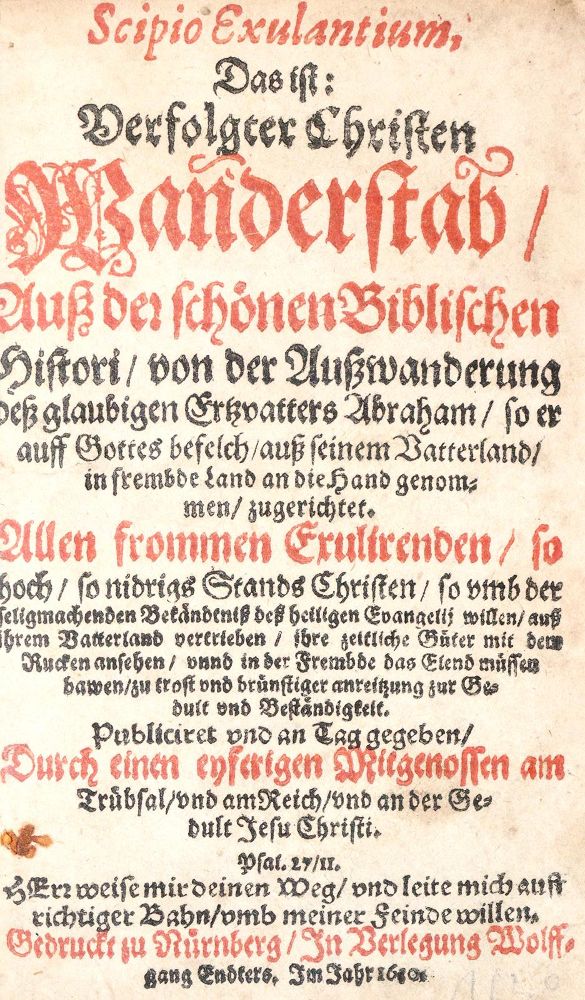 Scipio Exulantium.
Das ist:
Verfolgter Christen
Wañderstab /
Auß der schönen Biblischen
Histori / von der Außwanderung
deß glaubigen Ertzvatters Abraham / so er
auff Gottes befelch / auß seinem Vatterland /
in frembde Land an die Hand genom-
men / zugerichtet.
Allen frommen Exulirenden / so
hoch / so nidrigs Stands Christen / so vmb der
seligmachenden Bekändtniß deß heiligen Evangelij willen / auß
ihrem Vatterland vertrieben / ihre zeitliche Güter mit dem
Rucken ansehen / vnnd in der Frembde das Elend müssen
bawen / zu trost vnd brünstiger anreitzung zur Ge-
dult vnd Beständigkeit.
Publiciret vnd an Tag gegeben /
Durch einen eyferigen Mitgenossen am
Trübsal / vnd am Reich / vnd an der Ge-
dult Jesu Christi.
Psal. 27 / 11.
HErr weise mir deinen Weg / vnd leite mich auff
richtiger Bahn / vmb meiner Feinde willen.
Gedruckt zu Nürnberg / In Verlegung Wolff-
gang Endters. Im Jahr